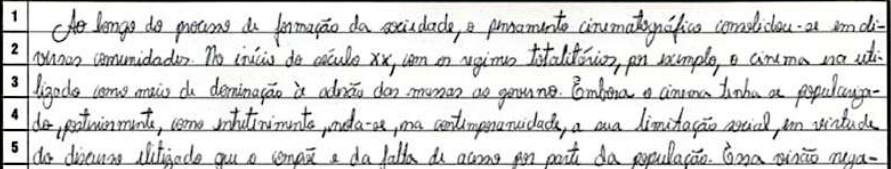 1 Ao longo do processo de formação da sociedade, o pensamento cinematográfico consolidou-se em di-
2 versas comunidades. No início do século XX, com os regimes totalitários, por exemplo, o cinema era uti-
3 lizado como meio de dominação à adesão das massas ao governo. Embora o cinema tenha se populariza-
4 do, posteriormente, como entretenimento, nota-se, na contemporaneidade, a sua limitação social, em virtude
5 do discurso elitizado que o compõe e da falta de acesso por parte da população. Essa visão nega-